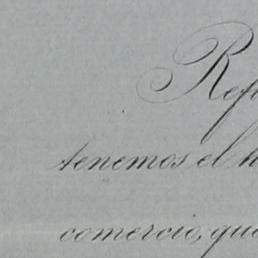 Ref
tenemos el h
comercio, que